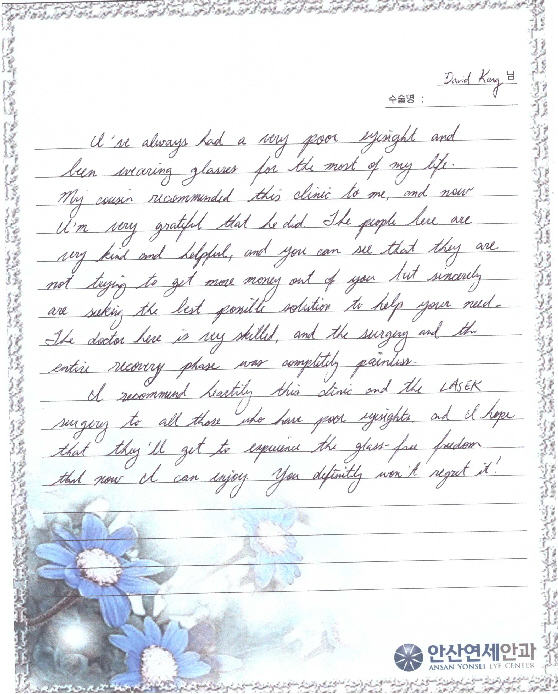 David Kang 님
수술명 :
I've always had a very poor eyesight and
been wearing glasses for the most of my life.
My cousin recommended this clinic to me, and now
I'm very grateful that he did. The people here are
very kind and helpful, and you can see that they are
not trying to get more money out of you but sincerely
are seeking the best possible solution to help your need.
The doctor here is very skilled, and the surgery and the
entire recovery phase was completely painless.
I recommend heartily this clinic and the LASEK
surgery to all those who have poor eyesights and I hope
that they'll get to experience the glass-free freedom
that now I can enjoy. You definitly won't regret it!
안산연세안과
ANSAN YONSEI EYE CENTER